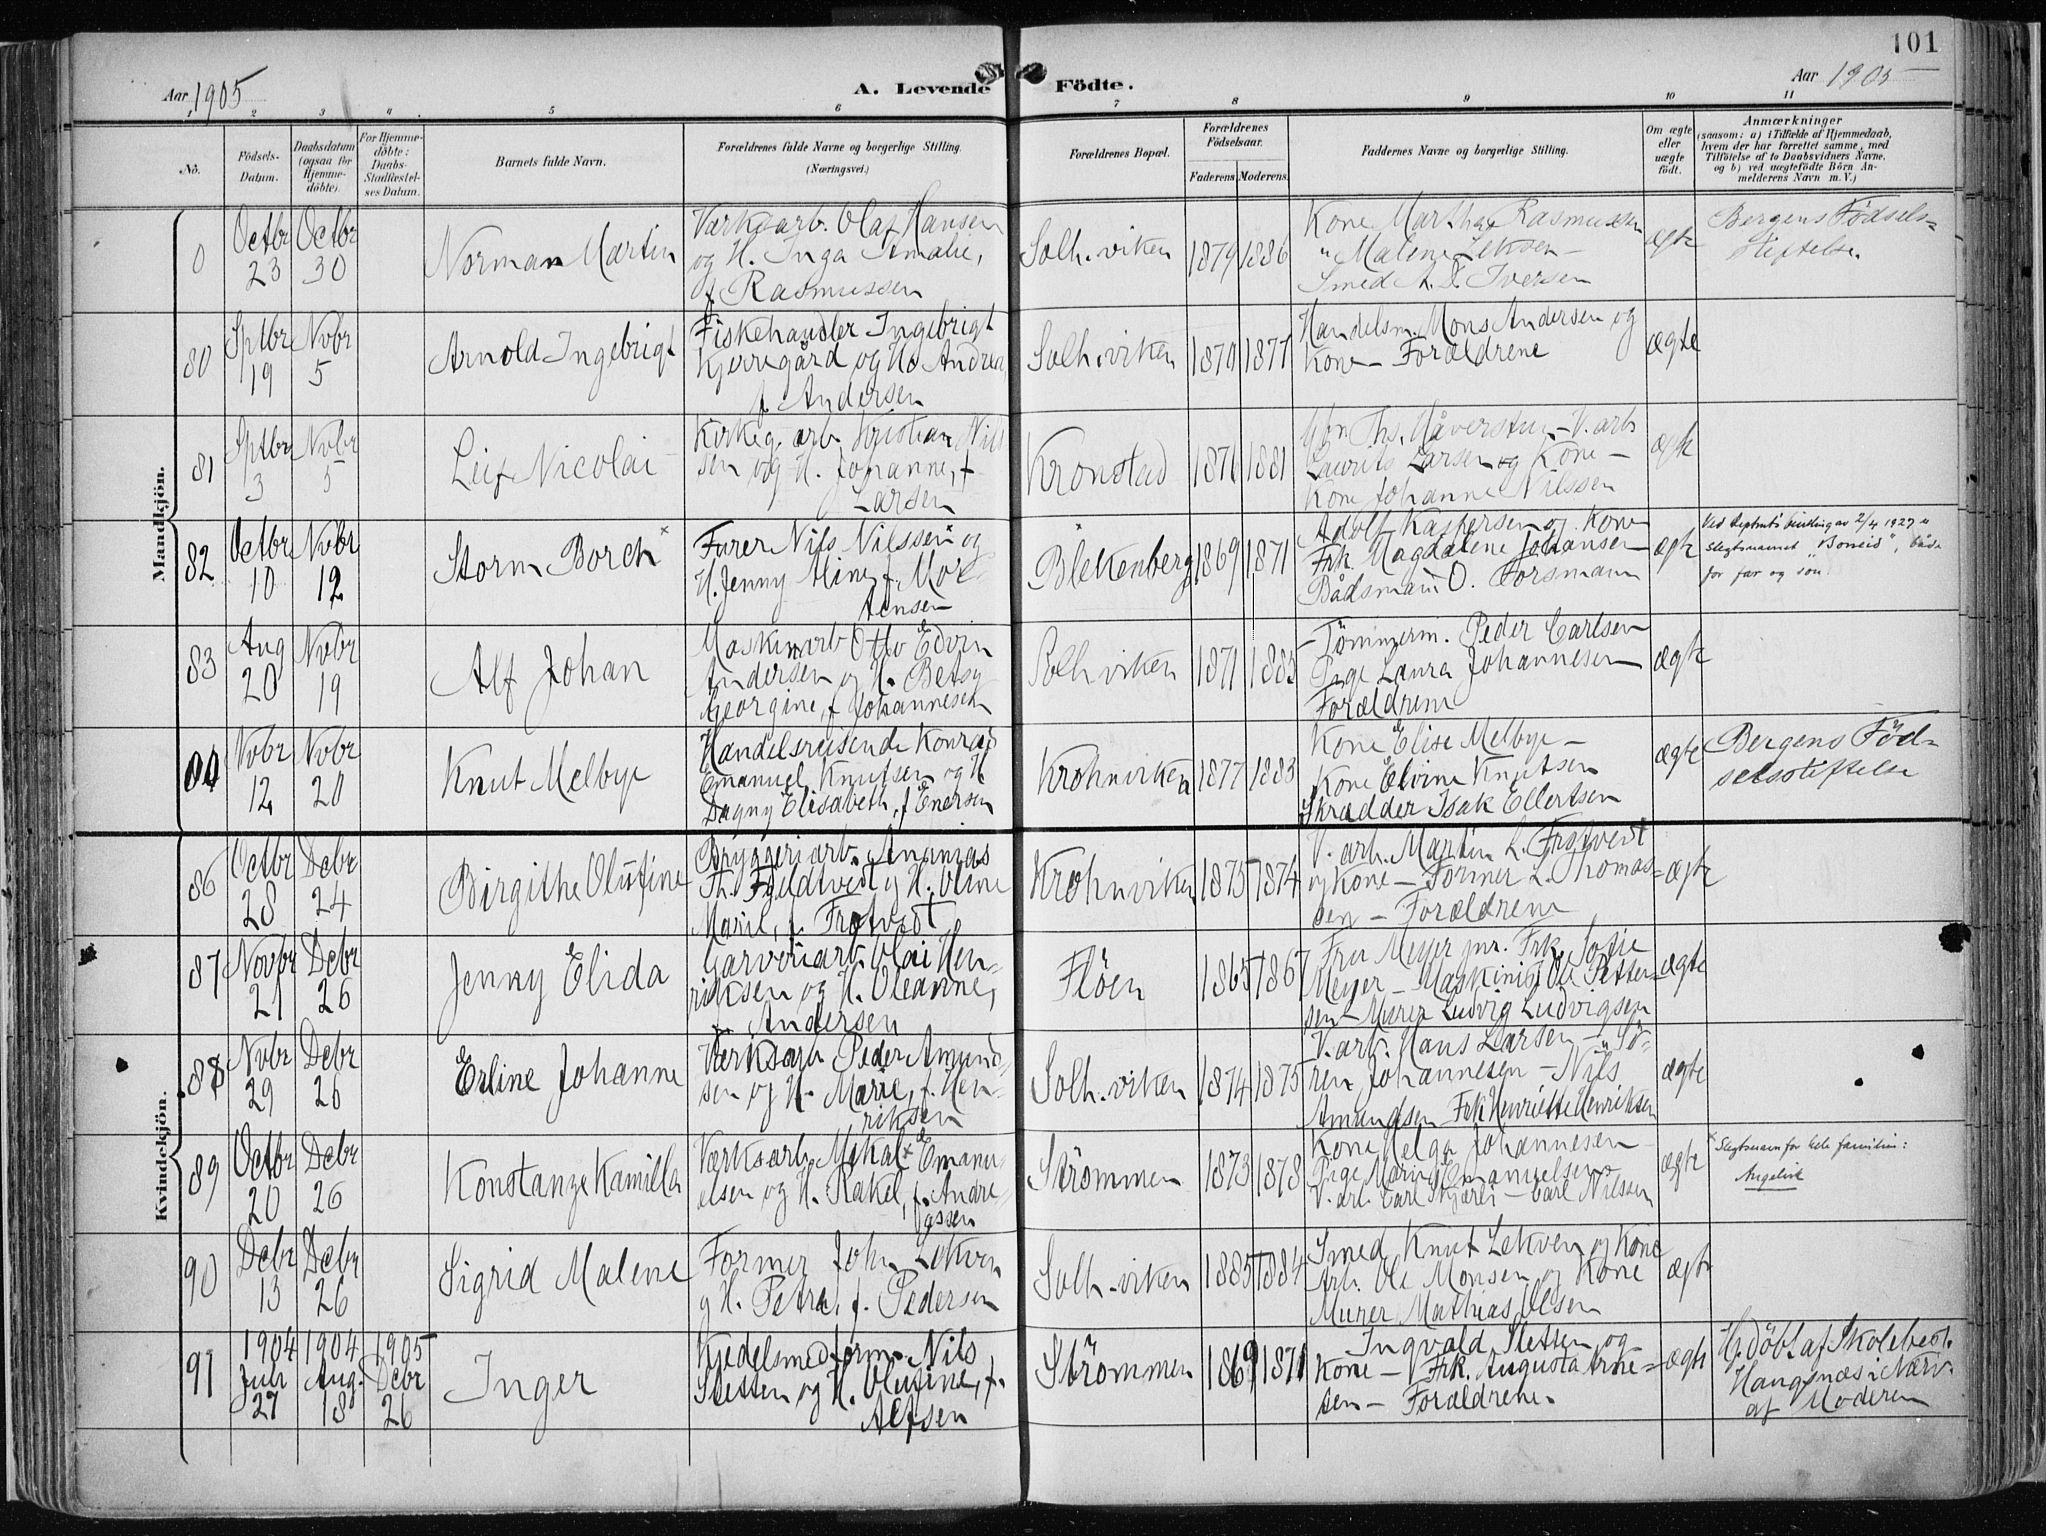 101
Aar 1905
A. Levende Födte.
Aar 1905
1 2 3 4 5 6 7 8 9 10 11
No.
Födsels-
Datum.
Daabsdatum
(ogsaa for
Hjemme-
döbte).
For Hjemme-
döbte:
Daabs-
Stadfæstel-
ses Datum.
Barnets fulde Navn.
Forældrenes fulde Navne og borgerlige Stilling.
(Næringsvei.)
Forældrenes Bopæl.
Forældrenes
Födselsaar.
Faderens Moderens.
Faddernes Navne og borgerlige Stilling.
Om ægte
eller
uægte
födt.
Anmærkninger
(saasom: a) i Tilfælde af Hjemmedaab,
hvem der har forrettet samme, med
Tilföielse af to Daabsvidners Navne,
og b) ved uægtefödte Börn An-
melderens Navn m. V.)
Mandkjön.
0
Octbr
23
Octbr
30
Norman Martin
Værksarb. Olaf Hansen
og H. Inga Amalie,
f. Rasmussen
Solh.viken
1879
1886
Kone Martha Rasmussen
" Malene Leksen -
Smed A. S. Iversen
ægte
Bergens Födsels-
stiftelse.
80
Sptbr
19
Novbr
5
Arnold Ingebrigt
Fiskehandler Ingebrigt
Kjerregård og Hs Andrea,
f. Andersen
Solh.viken
1870
1877
Handelsm. Mons Andersen og
Kone - Forældrene
ægte
81
Sptbr
3
Novbr
5
Leif Nicolai
Kirkeg. arb. Kristian Nils
sen og H. Johanne, f.
Larsen
Kronstad
1876
1881
Ths. Håverstun - V. arb
Laurits Larsen og Kone -
Kone Johanne Nilssen
ægte
82
Octbr
10
Nvbr
12
Storm Borch x
Furer Nils Nilssen x og
H. Jenny Mine, f. Mor-
tensen
Blekenberg
1869
1871
Adolf Kaspersen og Kone
Frk Magdalene Johansen
Bådsmann O. Forsmann
ægte
Ved Deptmts bevilling av 2/4 1927 er
slegtsnavnet "Borreid", både
for far og søn.
83
Aug
20
Nvbr
19
Alf Johan
Maskinarb Otto Edvin
Andersen og H. Betsy
Georgine, f. Johannesen
Solhviken
1871
1885
- Tömmerm. Peder Carlsen
Pige Laura Johannesen
Forældrene
ægte
Nvbr
12
Nvbr
20
Knut Melbye
Handelsreisende Konrad
Emanuel Knutsen og H
Dagny Elisabeth, f. Enersen
Krohnviken
1877
1883
Kone Elise Melbye -
Kone Elvine Knutsen
Skrædder Isak Ellertsen
ægte
Bergens Föd-
selsstiftelse
Kvindekjön.
86
Octbr
28
Debr
24
Birgithe Olufine
Bryggeriarb. Ananias
Th. Fjeldtvedt og H. Oline
Marie, f. Frotvedt
Krohnviken
1875
1874
V. arb. Martin L. Frotvedt
og Kone - Former L. Thomas-
sen - Forældrene
ægte
87
Novbr
21
Debr
26
Jenny Elida
Garveriarb. Olai Hen-
riksen og H. Oleanne,
f. Andersen
Flöen
1865
1867
Fru Meyer jnr. Frk. Sofie
Meyer - Maskinist Ole Petter-
sen - Murer Ludvig Ludvigsen
ægte
88
Nvbr
29
Debr
26
Erline Johanne
Værksarb. Peder Amund-
sen og H. Marie, f. Hen-
riksen
Solh.viken
1874
1875
V. arb. Hans Larsen - " Sö-
ren Johannesen - Nils
Amundsen Frk Henriette Henriksen
ægte
89
Octbr
20
Debr
26
Konstanze Kamilla
Værksarb. Mikal x Emanu-
elsen og H. Rakel, f. Andre-
assen
Strömmen
1873
1878
Kone Helga Johannesen
Pige Marin Emanuelsen
V. arb. Carl Skjærli - Carl Nilssen
ægte
x Slegtsnavn for hele familien:
Angelvik
90
Debr
13
Debr
26
Sigrid Malene
Former John Lekven
og H. Petra, f. Pedersen
Solh.viken
1885
1884
Smed Knut Lekven og Kone
Arb. Ole Monsen og Kone
Murer Mathias Olsen
ægte
91
1904
Juli
27
1904
Aug.
18
1905
Debr
26
Inger
Kjedelsmedform. Nils
Stetten og H. Olufine, f.
Alfsen
Strömmen
1869
1871
Ingvald Stetten og
Kone - Frk. Augusta Arne-
sen - Forældrene.
ægte
H. döbt af Skolebest.
Haugsnæs i Nærv.
af Moderen